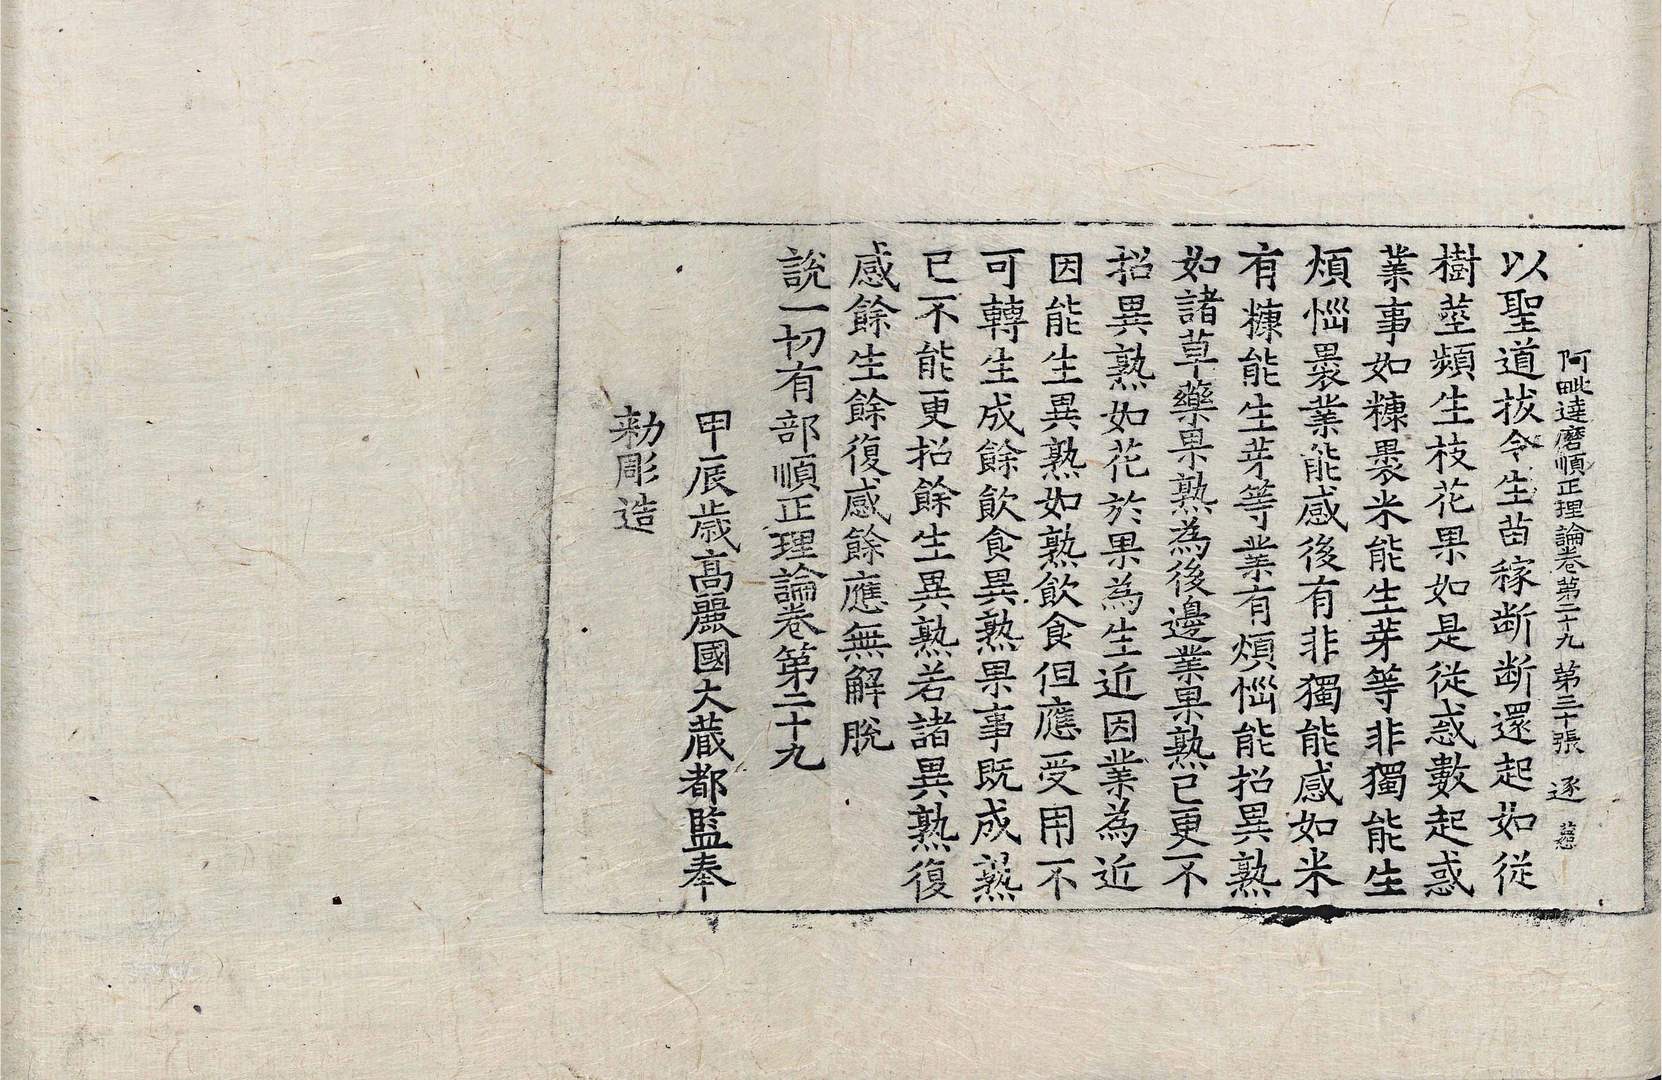 阿毗達磨順正理論卷第二十九 第三十張 逐
以聖道拔令生苗稼断断還起如従
樹莖頻生枝花果如是従惑數起惑
業事如糠裹米能生芽等非獨能生
煩惱裹業能感後有非獨能感如米
有糠能生芽等業有煩惱能招異熟
如諸草藥果熟為後邊業果熟已更不
招異熟如花於果為生近因業為近
因能生異熟如熟飲食但應受用不
可轉生成餘飲食異熟果事既成熟
已不能更招餘生異熟若諸異熟復
感餘生餘復感餘應無解脫
說一切有部順正理論卷第二十九
甲辰歳高麗國大藏都監奉
勑彫造